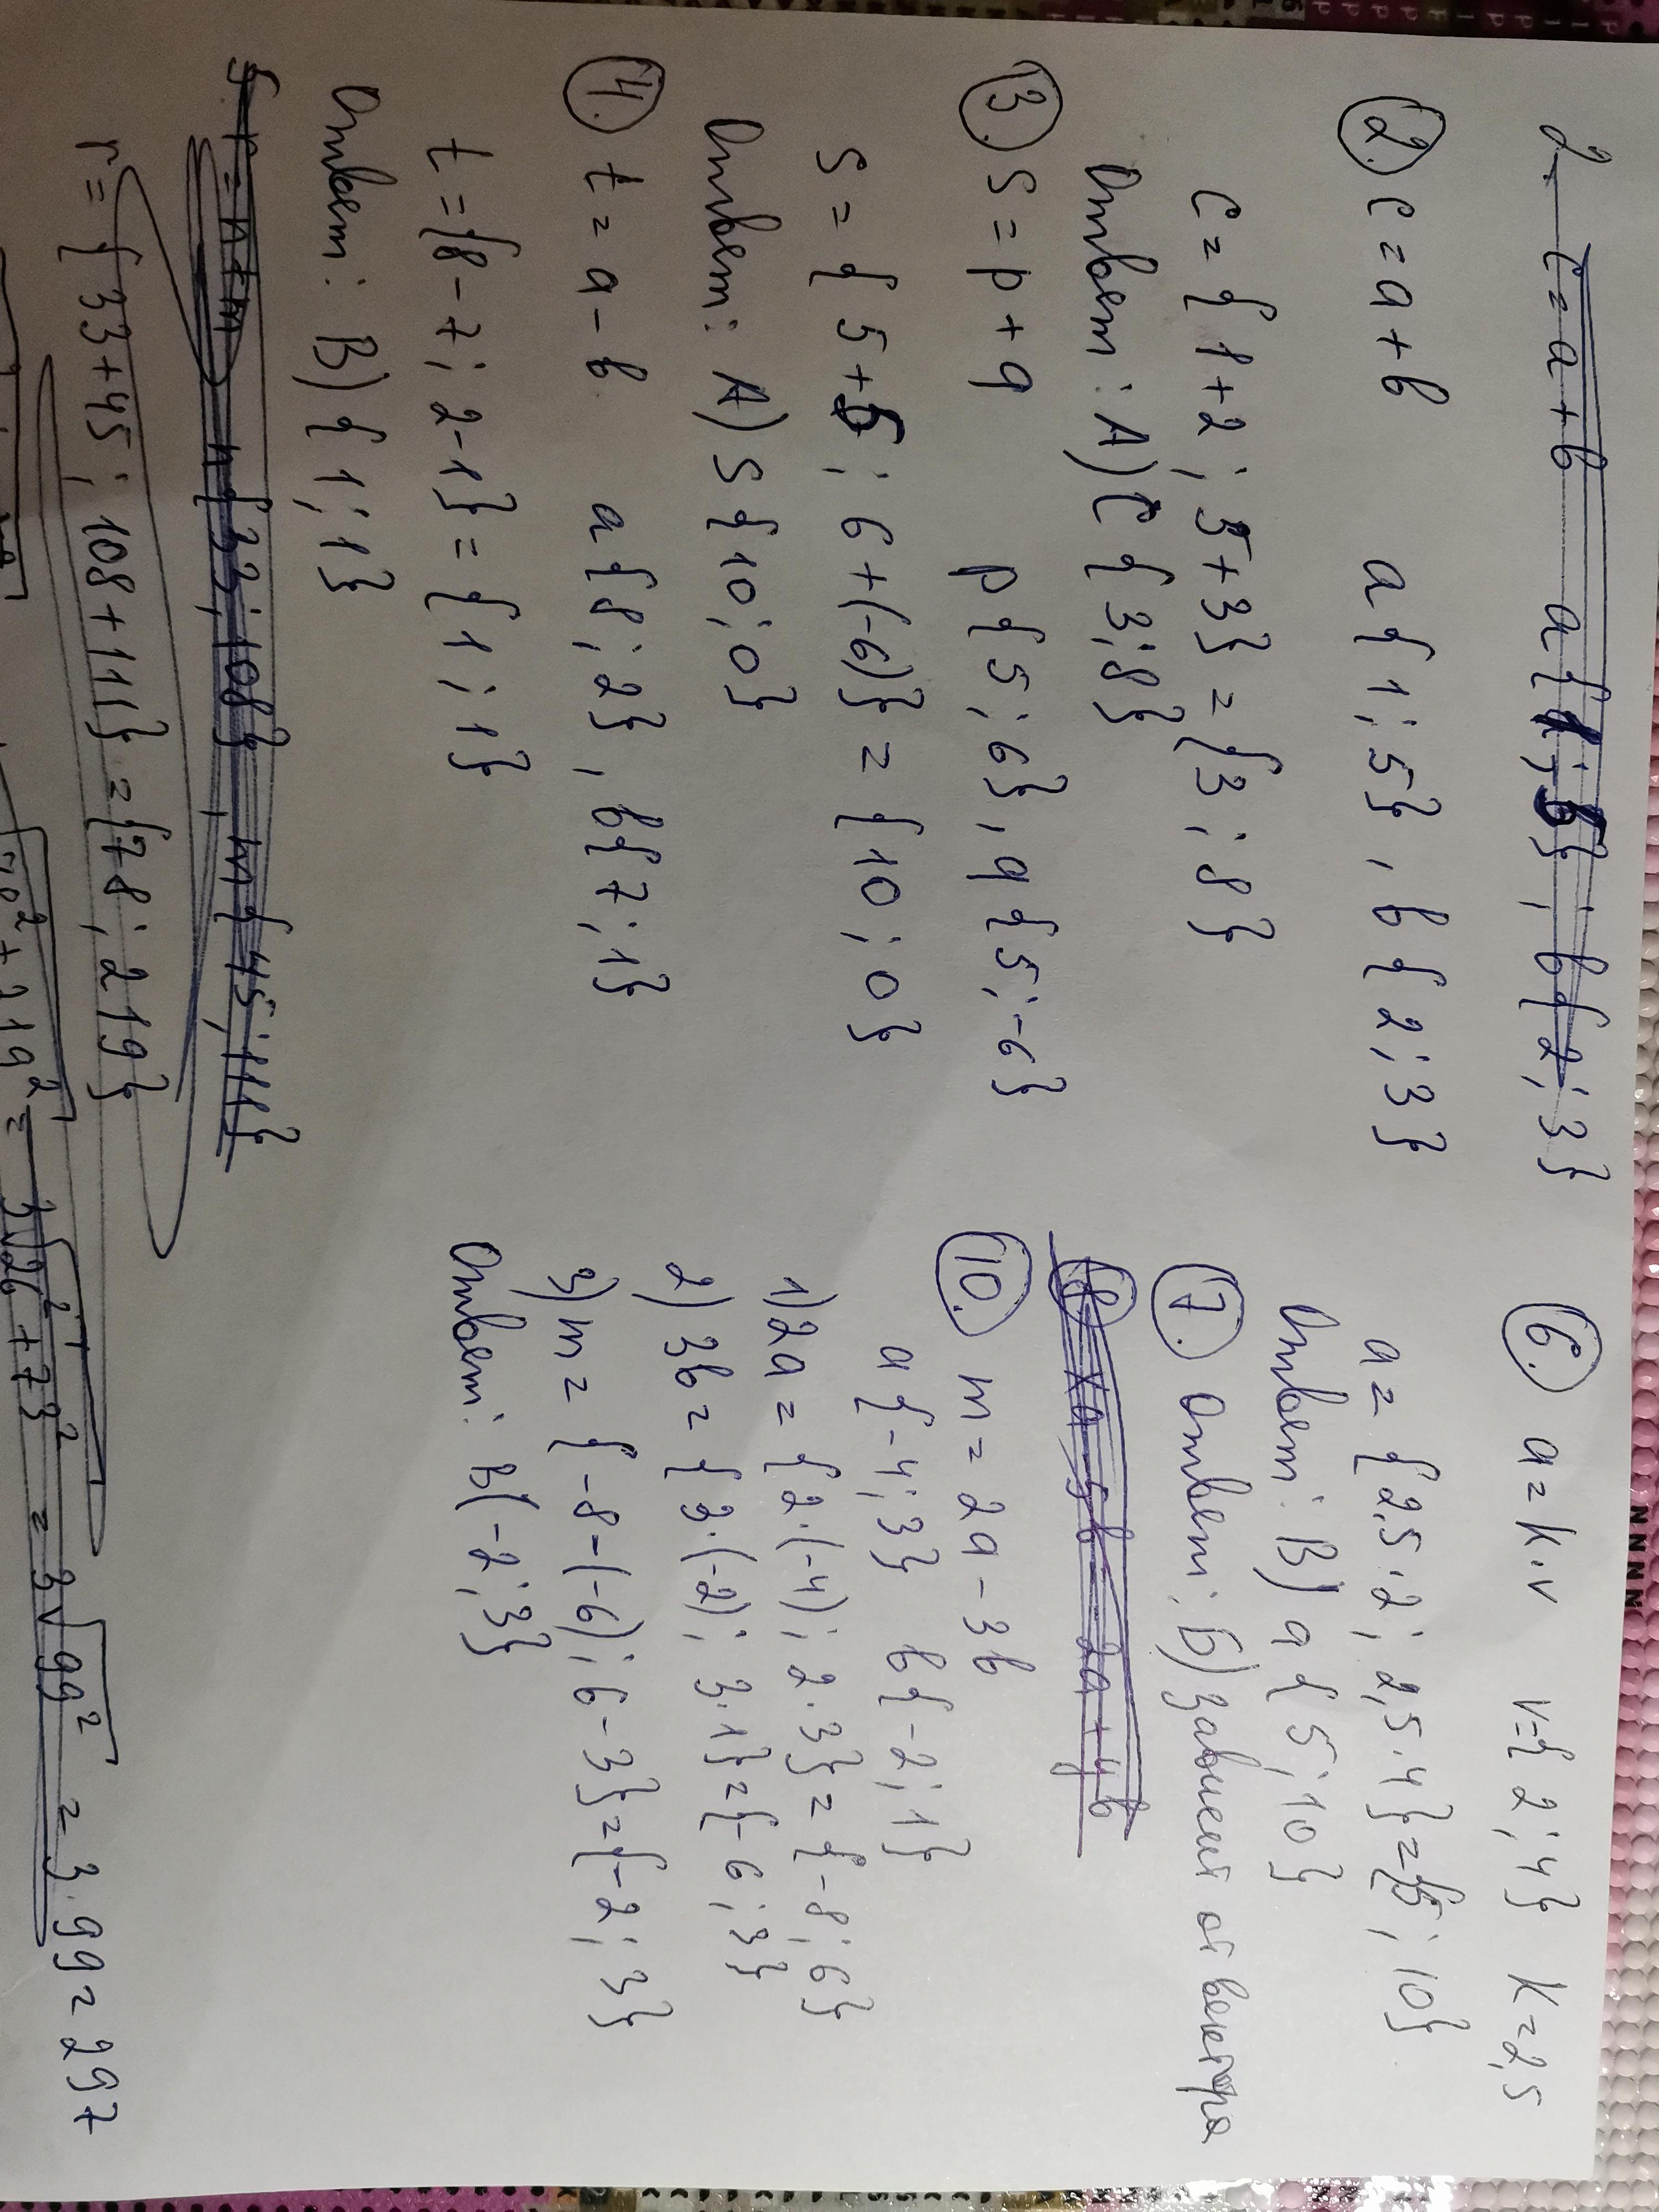 2. c = a + b a{1; 5}; b{2; 3}
2. c = a + b a{1; 5}, b{2; 3}
c = {1+2; 5+3} = {3; 8}
Ответ: А) c{3; 8}
3. s = p + q p{5; 6}, q{5; -6}
s = {5+5; 6+(-6)} = {10; 0}
Ответ: А) s{10; 0}
4. t = a - b a{8; 2}, b{7; 1}
t = {8-7; 2-1} = {1; 1}
Ответ: В) {1; 1}
5. r = n + m n{33; 108}, m{45; 111}
r = {33+45; 108+111} = {78; 219}
+ 219² = 3√26² + 73² = 3√99² = 3·99 = 297
6. a = k·v v={2; 4} k=2,5
a = {2,5·2; 2,5·4} = {5; 10}
Ответ: В) a{5; 10}
7. Ответ: Б) зависит от вектора
2a + 4b
10. m = 2a - 3b
a{-4; 3} b{-2; 1}
1) 2a = {2·(-4); 2·3} = {-8; 6}
2) 3b = {3·(-2); 3·1} = {-6; 3}
3) m = {-8-(-6); 6-3} = {-2; 3}
Ответ: В{-2; 3}